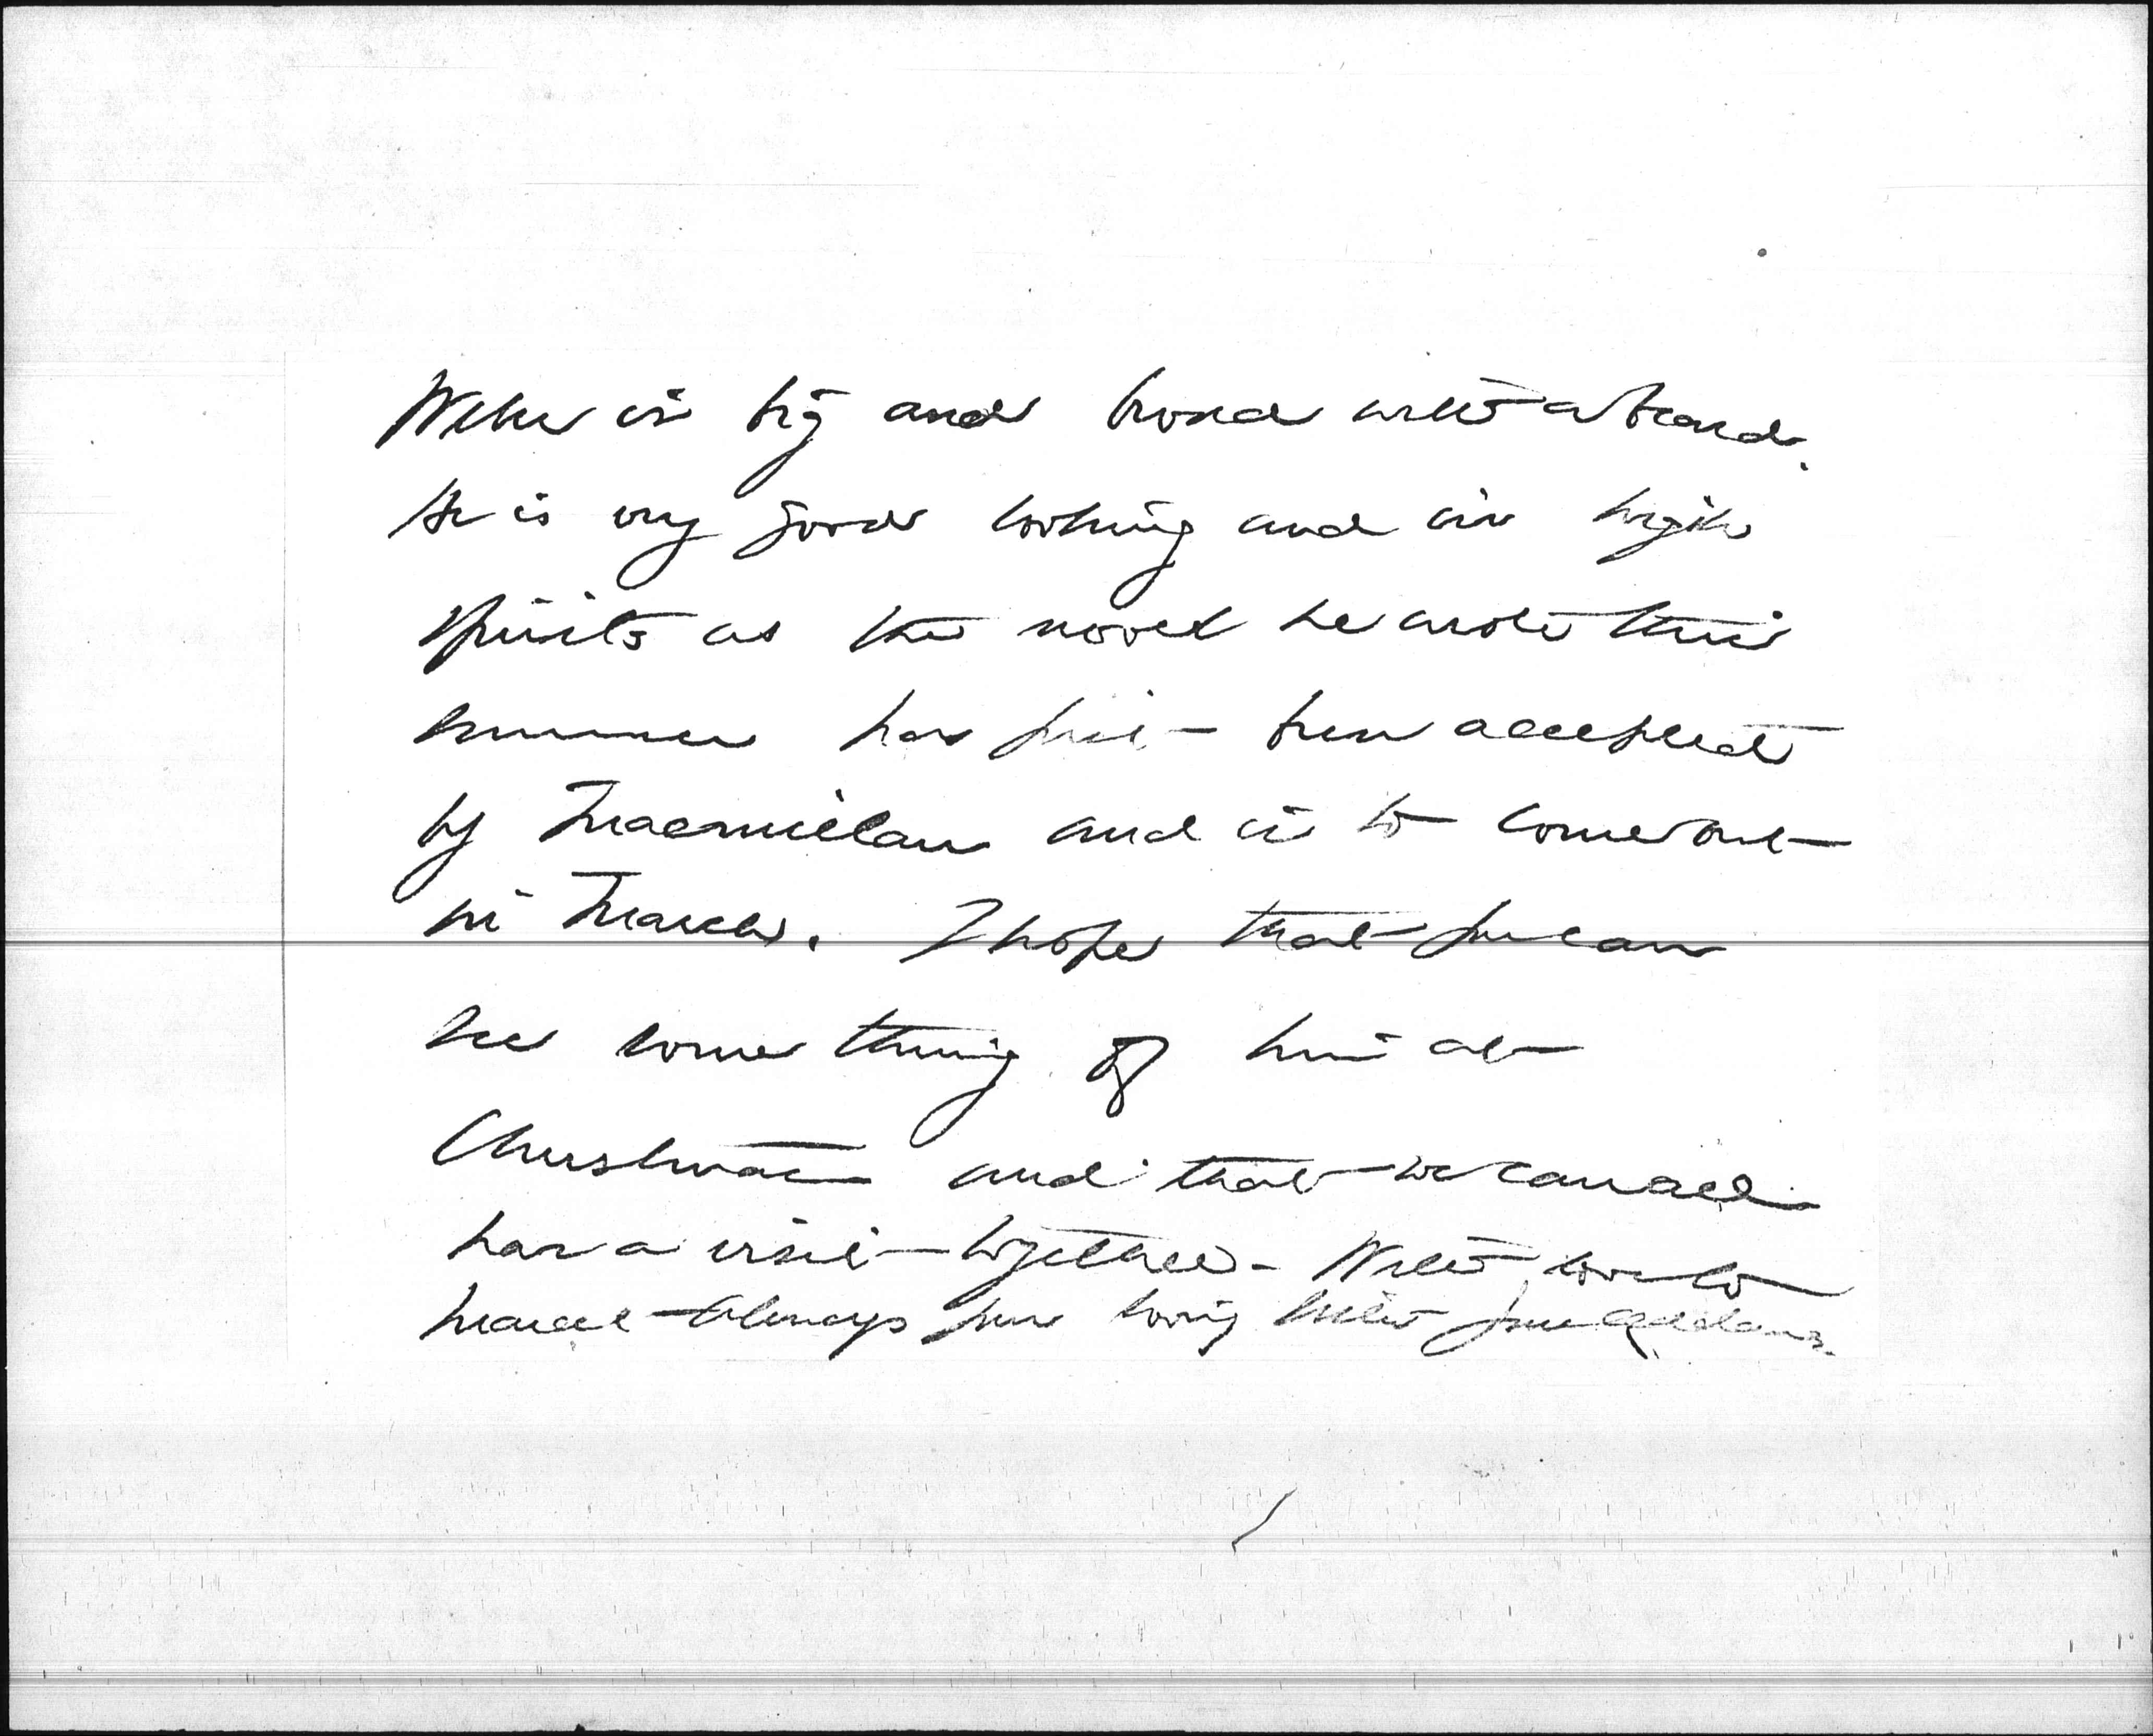 Weber is big and broad with a beard.
He is very good looking and in high
spirits as the novel he wrote this
summer has just been accepted
by Macmillan and is to come out
in March. I hope that you can
see something of him at
Christmas and that we can all
have a visit together - With love to
Marcet - Always your loving sister Jane Addams.